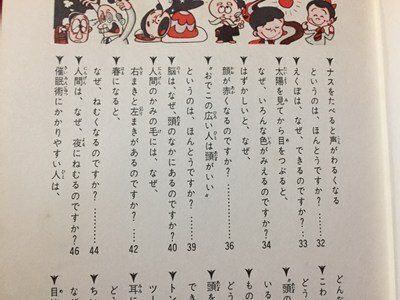 ナスをたべると声がわるくなる
というのは、ほんとうですか?……… 32
えくぼは、なぜ、できるのですか?… 33
太陽を見てから目をつぶると、
なぜ、いろんな色がみえるのですか? 34
はずかしいと、なぜ、
顔が赤くなるのですか?……… 36
“おでこの広い人は頭がいい”
というのは、ほんとうですか?……… 39
脳は、なぜ、頭のなかにあるのですか? 40
人間のかみの毛には、なぜ、
右まきと左まきがあるのですか?… 42
春になると、
なぜ、ねむくなるのですか?……… 44
人間は、なぜ、夜にねむるのですか? 46
催眠術にかかりやすい人は、
どん
こわ
どう
“頭の
いる
もの
どう
頭を
でき
トン
ツー
耳に
どう
ち
なぜ
目